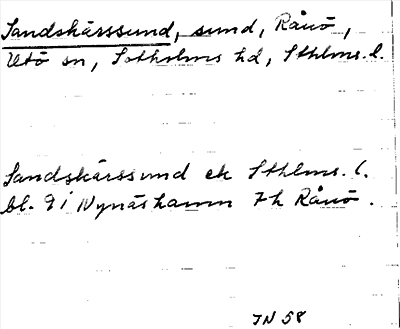 Sandskärssund, sund, Rånö,
Utö sn, Sotholms hd, Sthlms. l.
Sandskärssund ek Sthlms. l.
bl. 9 i Nynäshamn 7h Rånö.
JN 58